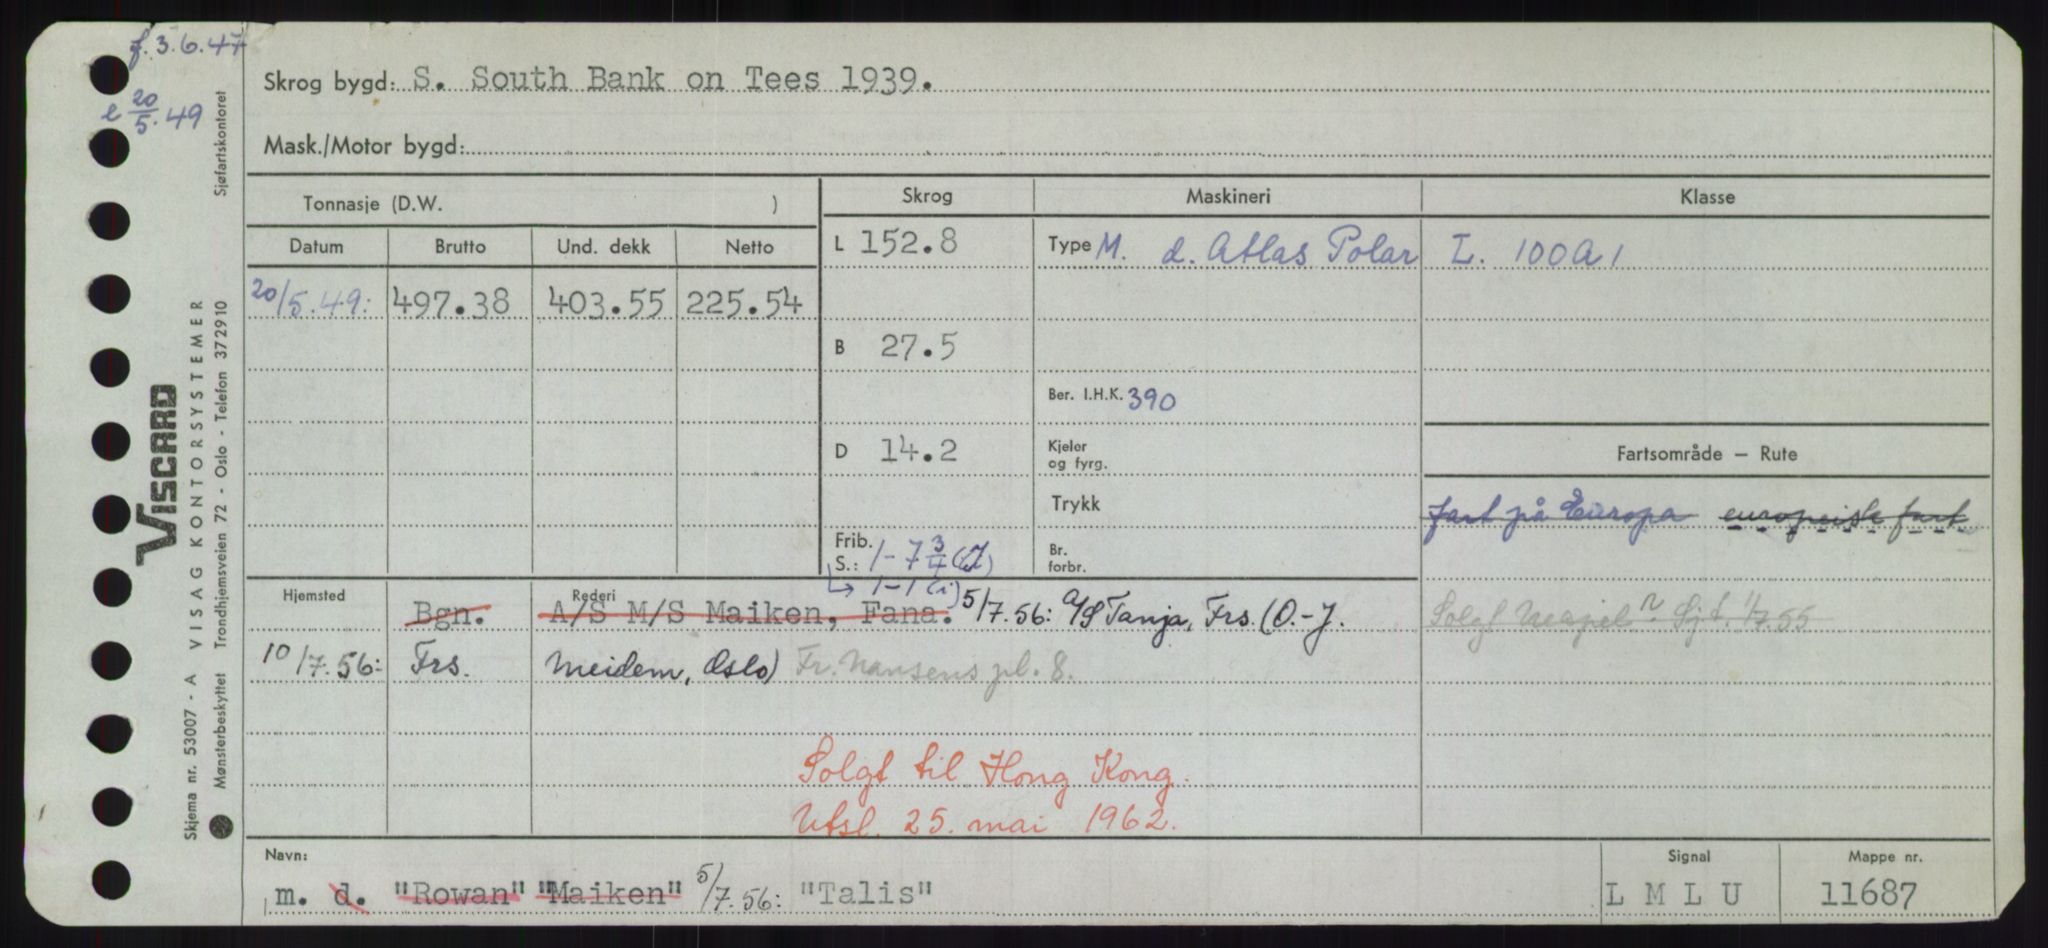 f. 3.6.47
e 20/5.49
Skrog bygd: S. South Bank on Tees 1939.
Mask./Motor bygd:
Tonnasje (D.W. )
Skrog
Maskineri
Klasse
Datum Brutto Und. dekk Netto
L 152.8
Type M. d. Atlas Polar
L. 100A1
20/5.49: 497.38 403.55 225.54
B 27.5
Ber. I.H.K. 390
D 14.2
Kjeler
og fyrg.
Fartsområde – Rute
Trykk
fart på Europa europeisk fart
Frib.
S.: 1-7 3/4 (J)
↳ 1-1 (i)
Br.
forbr.
Hjemsted
Rederi
Bgn. A/S M/S Maiken, Fana. 5/7.56: A/S Tanja, Frs. (O.-J.
Solgt 1/7.55
10/7.56: Frs. Meidem, Oslo) Fr. Nansens pl. 8.
Solgt til Hong Kong.
Utsl. 25. mai 1962.
Navn:
m. d. "Rowan" "Maiken" 5/7.56: "Talis"
Signal
L M L U
Mappe nr.
11687
Sjøfartskontoret
VISCARD
VISAG KONTORSYSTEMER
Trondhjemsveien 72 - Oslo - Telefon 372910
Skjema nr. 53007 - A
Mønsterbeskyttet